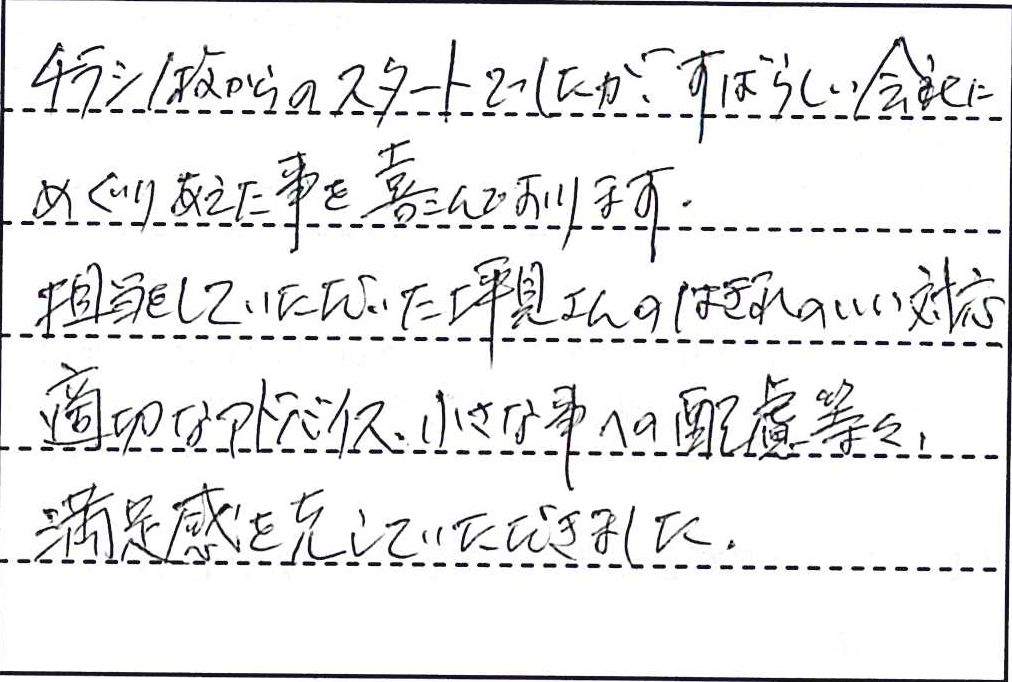 チラシ1枚からのスタートでしたが、すばらしい会社に
めぐりあえた事を喜こんでおります。
担当をしていただいた坪見さんのはぎれのいい対応
適切なアドバイス、小さな事への配慮等々、
満足感を充していただきました。